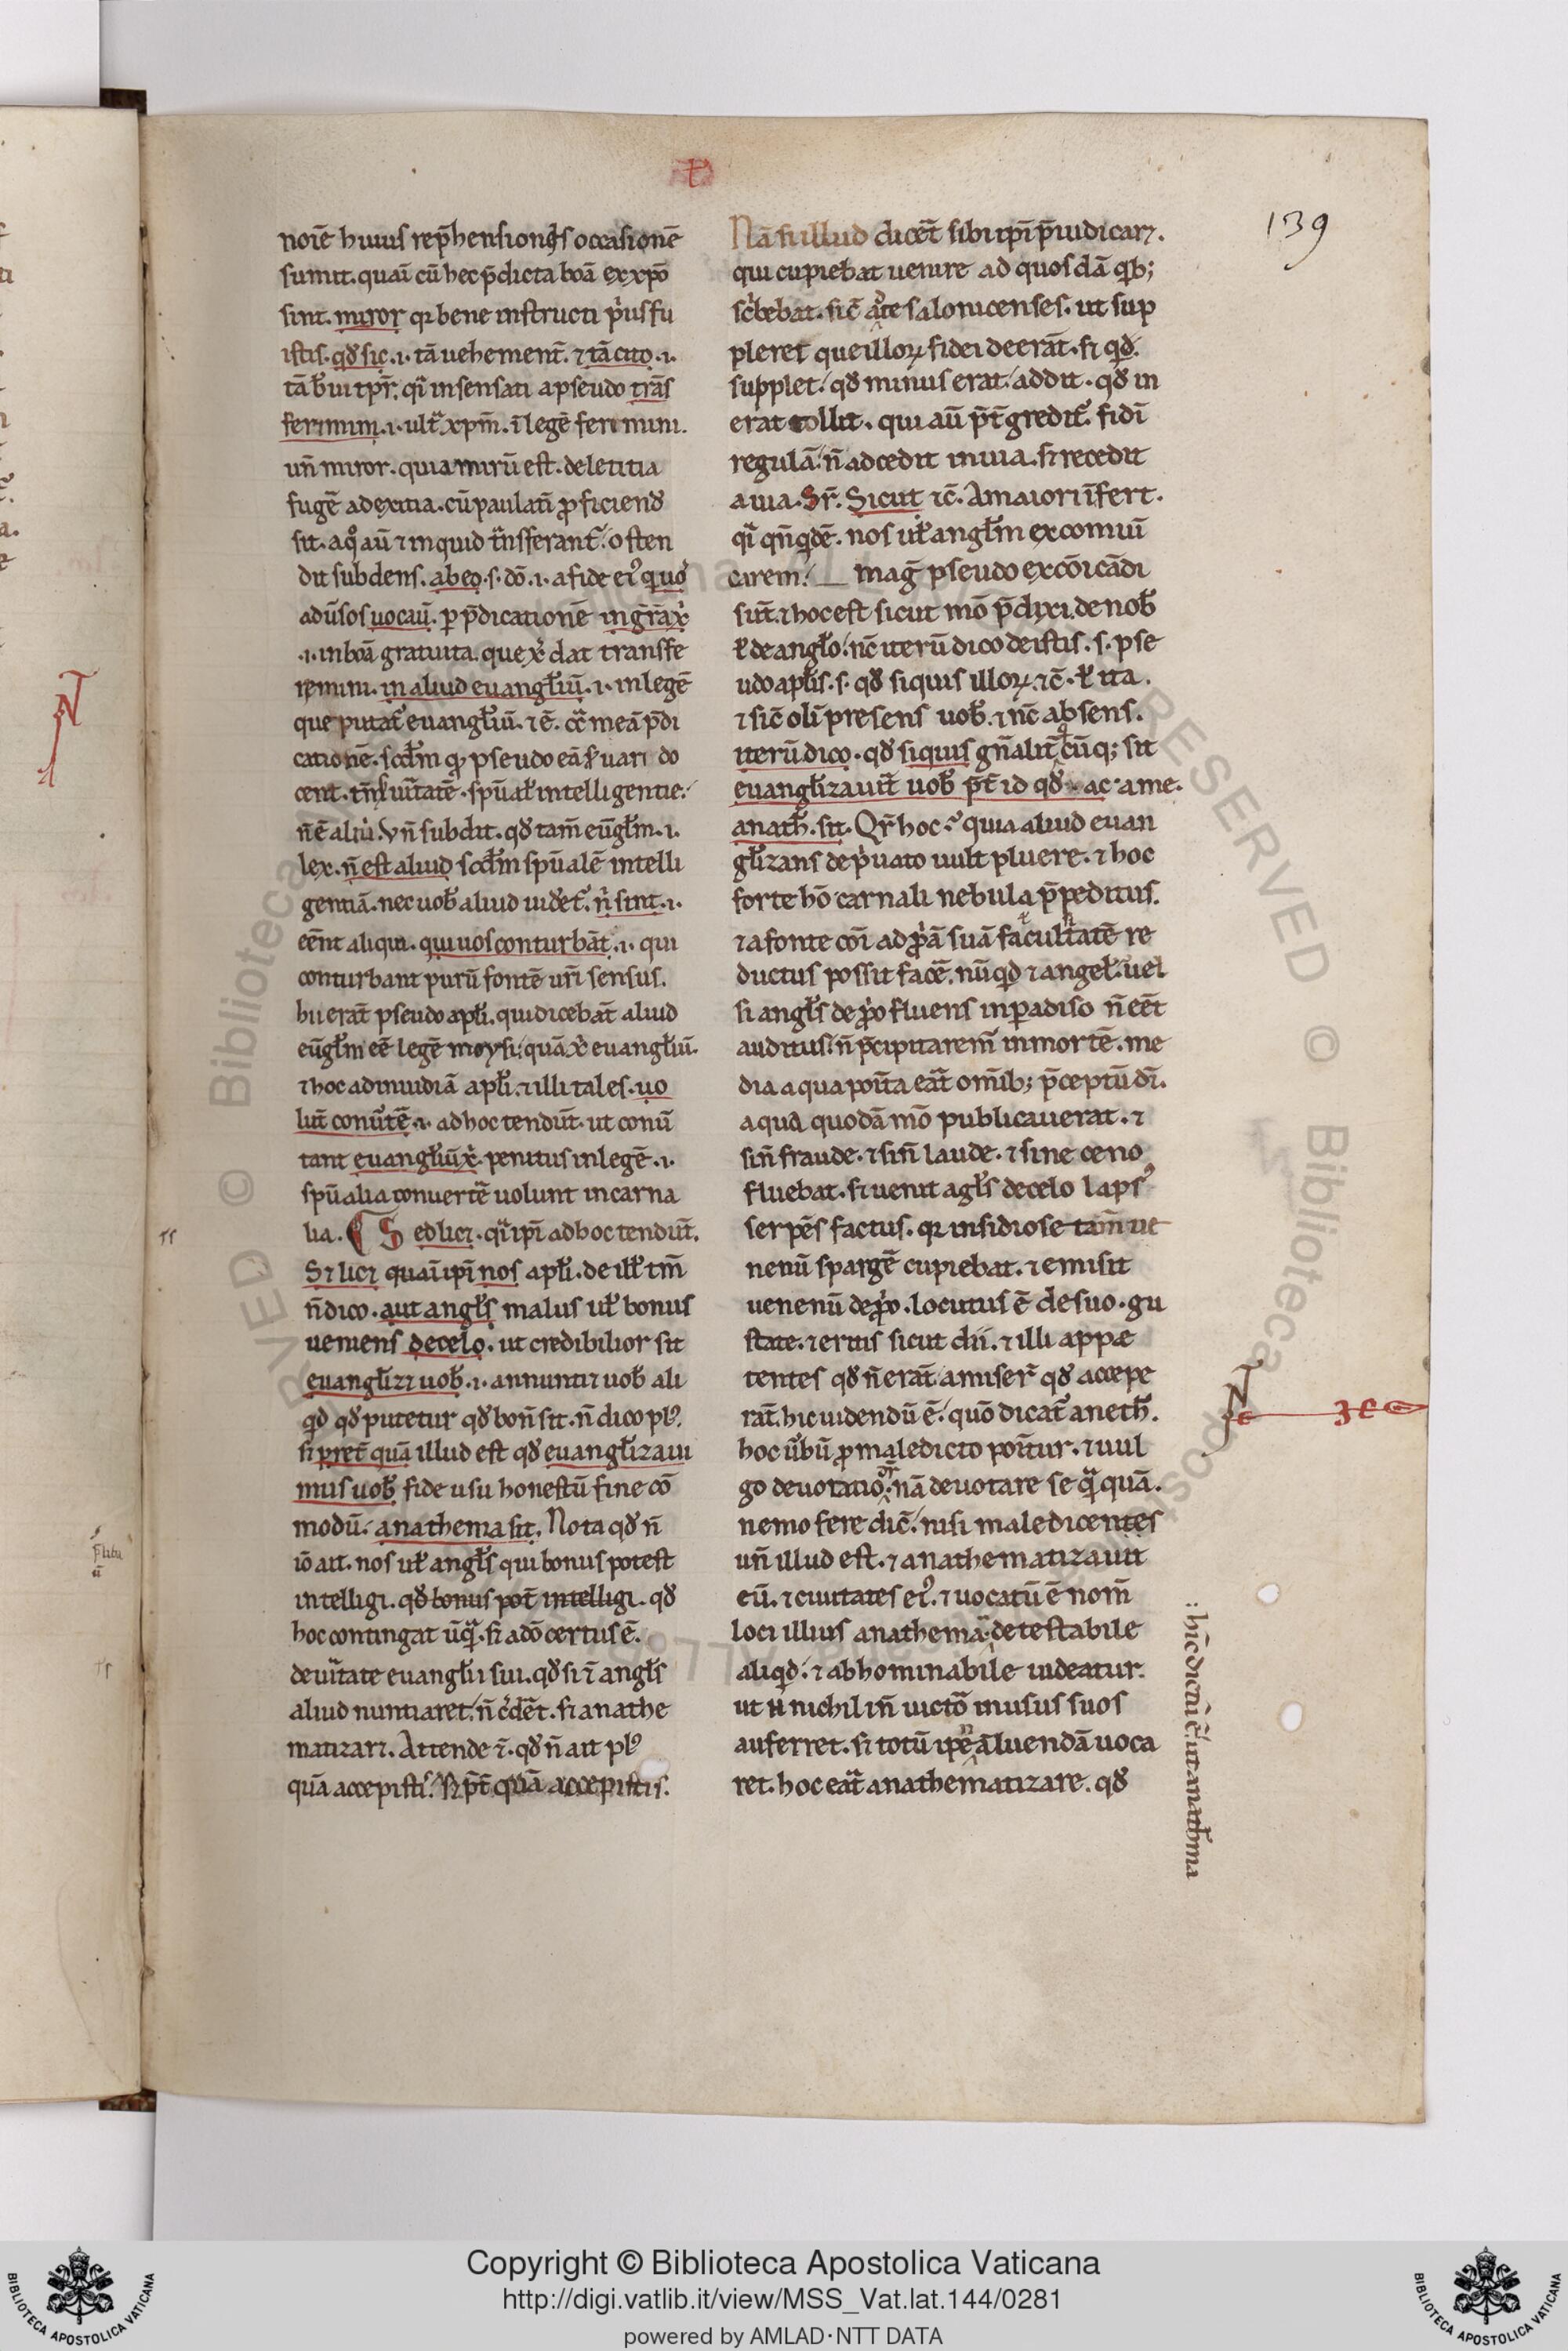 139
noīe huius rep̄hensionis occasionē
sumit. quaī cū hec p̄dicta bōa ex xp̄o
sint. miror qr bene instructi prius fu
istis. qd sic .i. tā uehement̄. ⁊ tā cito .i.
tā b̄ui tp̄r. qī insensati a pseudo trās
ferimini .i. ultͣ xp̄m. ī legē ferimini.
un̄ miror. quia mirū est. de letitia
fugē ad exitia. cū paulatī proficiend
sit. a qͦ aū ⁊ in quid tͣnsferant̄ / osten
dit subdens. ab eo .s. dō .i. a fide ei⁹ qui uo
adūsos uocaū. per p̄dicationē in gr̄a xͥ
.i. in bōa gratuita. que xͥ dat transfe
remini. in aliud euangl̄iū .i. in legē
que putat̄ euangl̄iū. ⁊ ē. cͣ meā p̄di
cationē. scd̄m quod pseudo eā s̄uari do
cent. tn̄ s̄ uītatē. spūal̄ intelligentie.
n̄ ē aliū. Vn̄ subdit. qd tam̄ eūgl̄m .i.
lex. n̄ est aliud scd̄m spūalē intelli
gentiā. nec uob̄ aliud uidet̄. nͥ sint .i.
eēnt aliqui. qui uos conturbāt .i. qui
conturbant purū fontē ur̄i sensus.
hii erāt pseudo apl̄i. qui dicebāt aliud
eūgl̄m eē legē moysi. quā xͥ euangl̄iū.
⁊ hoc ad inuidiā apl̄i. ⁊ illi tales. uo
lūt conūtē .i. ad hoc tendūt. ut conū
tant euangl̄iū xͥ. penitus in legē .i.
spūalia conuertē uolunt in carna
lia. ¶ Sed licꝫ. qͣ ip̄i ad hoc tendūt.
Sꝫ licꝫ quaī ip̄i nos apl̄i. de ill̄ tm̄
n̄ dico. aut angl̄s malus ul̄ bonus
ueniens de celo. ut credibilior sit
euangl̄izꝫ uob̄ .i. annuntiꝫ uob̄ ali
qd qd putetur qd bon̄ sit. n̄ dico pl⁹.
sꝫ pret̄ quā illud est qd euangl̄izaui
mus uob̄ fide usu honestū fine cō
modū. anathema sit. Nota qd n̄
iō ait. nos ul̄ angl̄s qui bonus potest
intelligi. qd bonus pot̄ intelligi. qd
hoc contingat ūqͣ. sꝫ adō certus ē.
de uītate euangl̄ii sui. qd si ī angl̄s
aliud nuntiaret / n̄ cͥdēt. sꝫ anathe
matizarꝫ. Attende ī. qd n̄ ait pl⁹
quā accepisti. Sꝫ p̄t̄ quā accepistis.
Nā si illud dicēt sibi ip̄i p̄iudicarꝫ.
qui cupiebat uenire ad quosdā qbꝫ
scͥbebat. sic̄ ad tesalonicenses. ut sup
pleret que illoꝝ fidei deerāt. sꝫ qd
supplet / qd minus erat / addit. qd in
erat tollit. qui aū p̄t̄gredit̄ fidī
regulā / n̄ adcedit in uia. sꝫ recedit
a uia. Sr̄. Sicut ⁊c̄. A maiori īfert.
qͣ qn̄qdē. nos ul̄ angl̄m excomuni
carem̄ / maḡ pseudo excōicādi
sūt. ⁊ hoc est sicut mō p̄dixi. de nob̄
ul̄ de angl̄o / nc̄ iterū dico de istis. s. pse
udoapl̄is. s. qd si quis illoꝝ. ⁊c̄. ul̄ ita.
⁊ sic̄ olī presens uob̄. ⁊ nc̄ absens.
iterū dico. qd si quis gn̄alit̄ cūqꝫ sit
euangl̄izauit uob̄ p̄t̄ id qd ac a me.
anath̄. sit. Qr̄ hoc? quia aliud euan
gl̄izans de pͥuato uult pluere. ⁊ hoc
forte hō carnali nebula p̄peditus.
⁊ a fonte cōi ad propͥā suā facultatē re
ductus possit facē. nūqd ⁊ angel̄. uel
si angl̄s de proͥo fluens in padiso n̄ eēt
auditus / n̄ p̄cipitarem̄ in mortē. me
dia aqua poīta eāt om̄ibꝫ p̄ceptū dī.
aqua quodā mō publicauerat. ⁊
sin̄ fraude. ⁊ sin̄ laude. ⁊ sine ceno
fluebat. sꝫ uenit agl̄s de celo laps⁹
serpēs factus. qr insidiose tam̄ ue
nenū spargē cupiebat. ⁊ emisit
uenenū de proͥo. locutus ē de suo. gu
state. ⁊ eritis sicut dii. ⁊ illi appe
tentes qd n̄ erāt amiser̄ qd accepe
rāt. hic uidendū ē. quō dicat̄ aneth̄.
hoc ūbū pro maledicto poīt̄ur. ⁊ uul
go deuotatio. nā deuotare se qͣ quā.
nemo fere dic̄. nisi maledicentes
un̄ illud est. ⁊ anathematizauit
eū. ⁊ ciuitates ei⁹. ⁊ uocatū ē nom̄
loci illius anathema. detestabile
aliqd. ⁊ abhominabile uideatur.
ut n̄ nichil in̄ uictō in usus suos
auferret. sꝫ totū ī penā luendā uoca
ret. hoc eāt anathematizare. qd
: hīc dictū ē ut anath̄ma
Copyright © Biblioteca Apostolica Vaticana
http://digi.vatlib.it/view/MSS_Vat.lat.144/0281
powered by AMLAD·NTT DATA